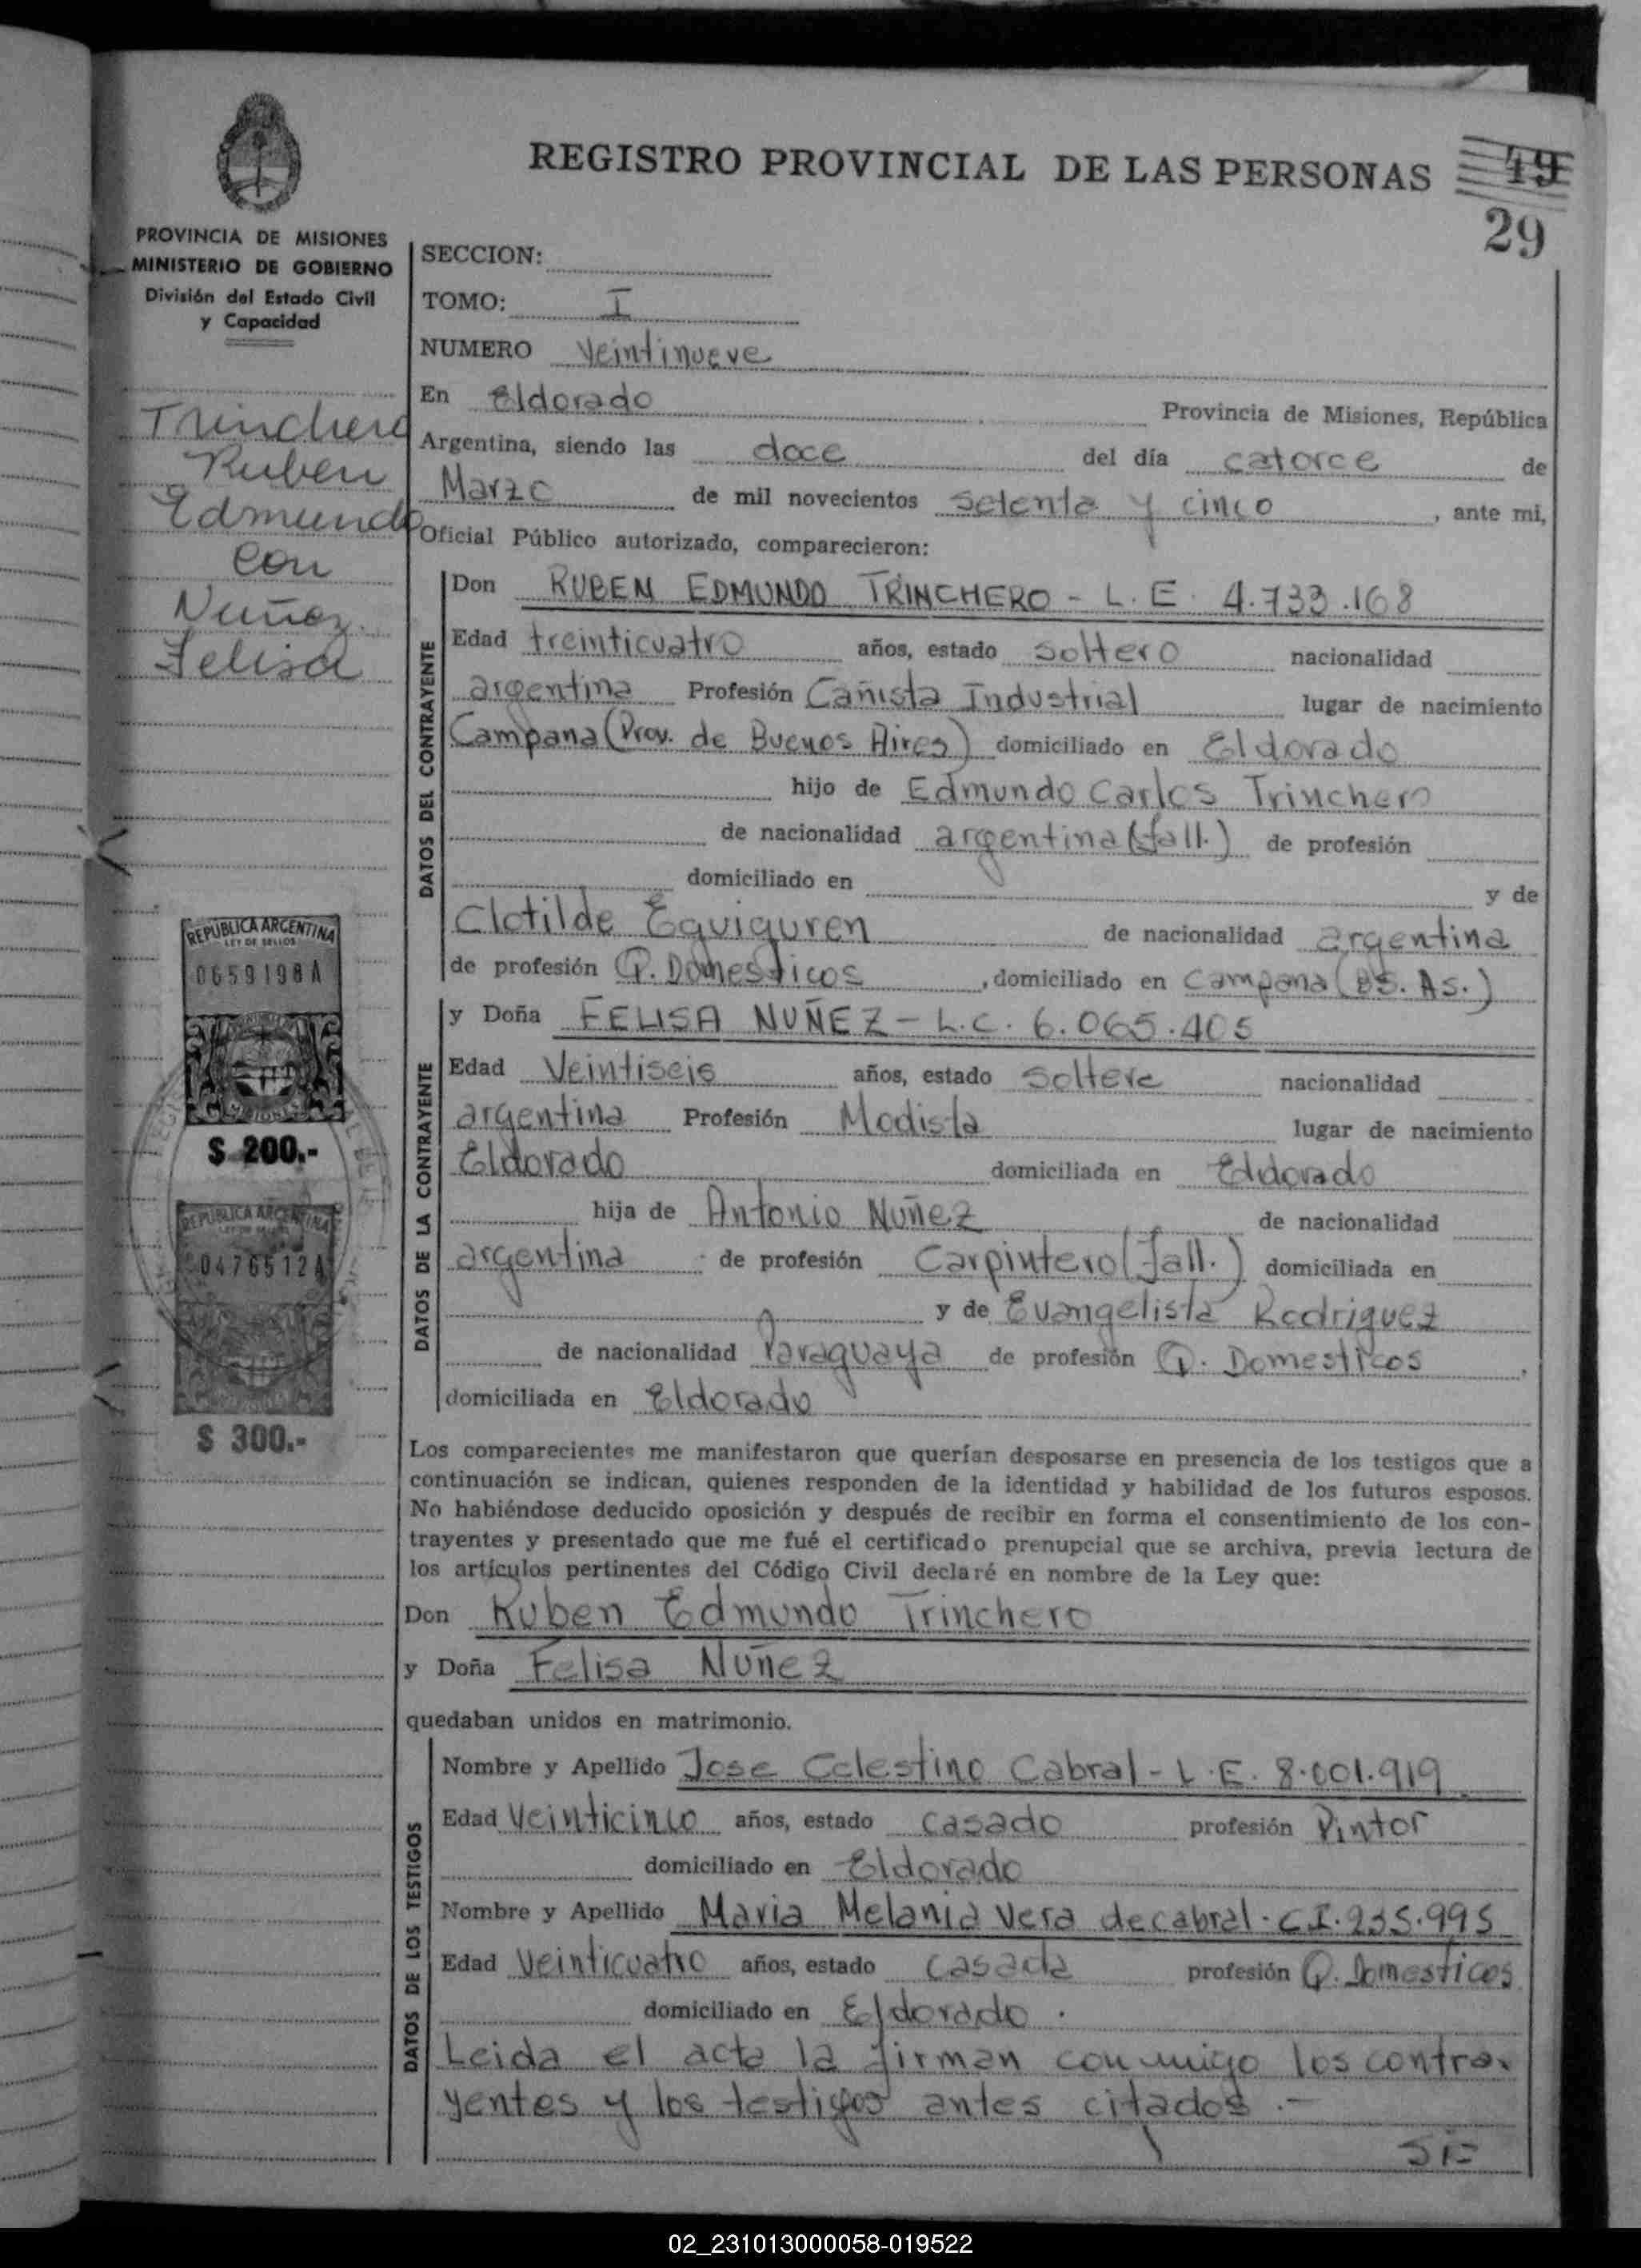 REGISTRO PROVINCIAL DE LAS PERSONAS
49
29
PROVINCIA DE MISIONES
MINISTERIO DE GOBIERNO
División del Estado Civil
y Capacidad
Trinchero
Ruben
Edmundo
con
Nuñez
Felisa
REPUBLICA ARGENTINA
LEY DE SELLOS
0659198A
MISIONES
$ 200.-
REPUBLICA ARGENTINA
0476512A
$ 300.-
SECCION:
TOMO: I
NUMERO Veintinueve
En Eldorado Provincia de Misiones, República
Argentina, siendo las doce del día catorce de
Marzo de mil novecientos setenta y cinco, ante mi,
Oficial Público autorizado, comparecieron:
DATOS DEL CONTRAYENTE
Don RUBEN EDMUNDO TRINCHERO - L.E. 4.733.168
Edad treinticuatro años, estado soltero nacionalidad
argentina Profesión Cañista Industrial lugar de nacimiento
Campana (Prov. de Buenos Aires) domiciliado en Eldorado
hijo de Edmundo Carlos Trinchero
de nacionalidad argentina (fall.) de profesión
domiciliado en y de
Clotilde Eguiguren de nacionalidad argentina
de profesión Q. Domesticos, domiciliado en Campana (BS. AS.)
DATOS DE LA CONTRAYENTE
y Doña FELISA NUÑEZ - L.C. 6.065.405
Edad Veintiseis años, estado soltera nacionalidad
argentina Profesión Modista lugar de nacimiento
Eldorado domiciliada en Eldorado
hija de Antonio Nuñez de nacionalidad
argentina de profesión Carpintero (fall.) domiciliada en
y de Evangelista Rodriguez
de nacionalidad Paraguaya de profesión Q. Domesticos,
domiciliada en Eldorado
Los comparecientes me manifestaron que querían desposarse en presencia de los testigos que a
continuación se indican, quienes responden de la identidad y habilidad de los futuros esposos.
No habiéndose deducido oposición y después de recibir en forma el consentimiento de los con-
trayentes y presentado que me fué el certificado prenupcial que se archiva, previa lectura de
los artículos pertinentes del Código Civil declaré en nombre de la Ley que:
Don Ruben Edmundo Trinchero
y Doña Felisa Nuñez
quedaban unidos en matrimonio.
DATOS DE LOS TESTIGOS
Nombre y Apellido Jose Celestino Cabral - L.E. 8.001.919
Edad Veinticinco años, estado casado profesión Pintor
domiciliado en Eldorado
Nombre y Apellido Maria Melania Vera de cabral - C.I. 235.995
Edad Veinticuatro años, estado casada profesión Q. Domesticos
domiciliado en Eldorado.
Leida el acta la firman conmigo los contra-
yentes y los testigos antes citados.-
02_231013000058-019522